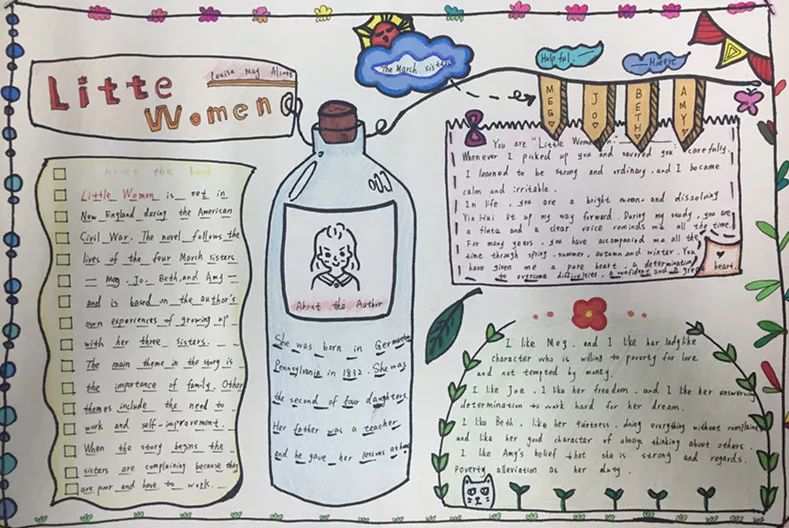 Litte
Women
Louisa May Alcott
The March sisters
Helpful
MEG
JO
BETH
AMY
About the book
Little Women is set in
New England during the American
Civil War. The novel follows the
lives of the four March sisters
— Meg, Jo, Beth, and Amy —
and is based on the author's
own experiences of growing up
with her three sisters.
The main theme in the story is
the importance of family. Other
themes include the need to
work and self-improvement.
When the story begins the
sisters are complaining because they
are poor and have to work.
About the Author
She was born in German
Pennsylvania in 1832. She was
the second of four daughters.
Her father was a teacher
and he gave her lessons at home
You are "Little Women"
Whenever I picked up you and savored you carefully.
I learned to be strong and ordinary, and I became
calm and irritable.
In life, you are a bright moon and dissolving
Yin Hui lit up my way forward. During my study, you are
a flute and a clear voice reminds me all the time.
For many years, you have accompanied me all the
time through spring, summer, autumn and winter. You
have given me a pure heart, a determination
to overcome difficulties, a confident and a great heart.
I like Meg, and I like her ladylike
character who is willing to poverty for love
and not tempted by money.
I like Joe. I like her freedom, and I like her unswerving
determination to work hard for her dream.
I like Beth, like her quietness, doing everything without complaining
and like her good character of always thinking about others.
I like Amy's belief that she is strong and regards
Poverty alleviation as her duty.